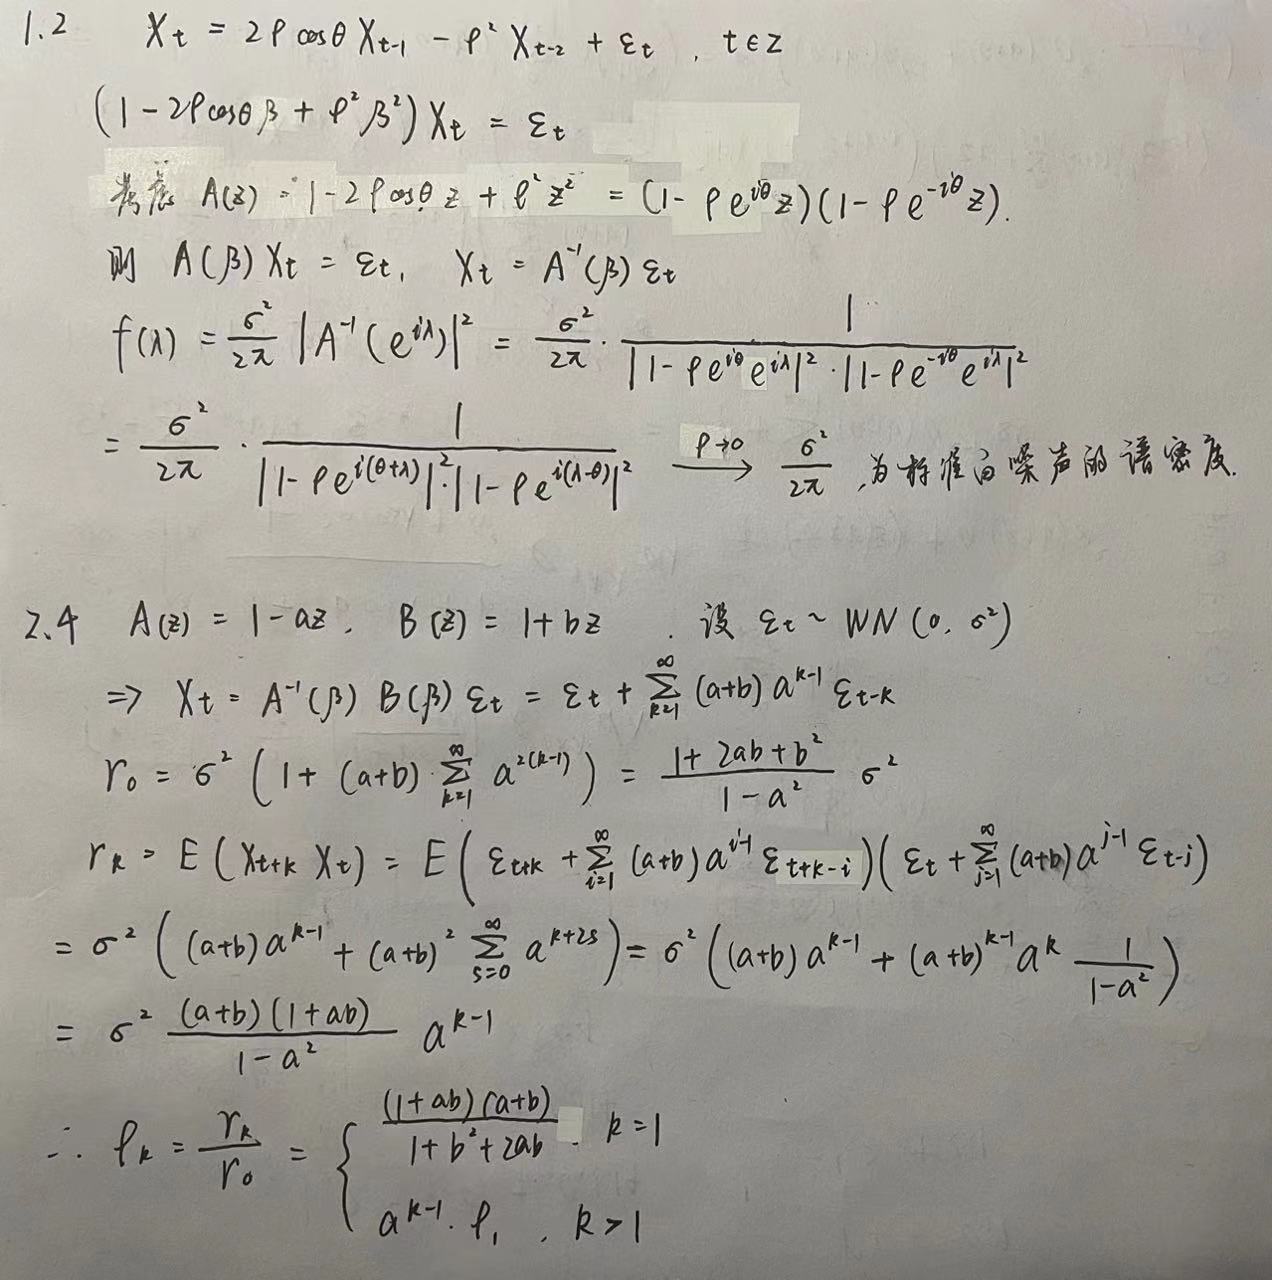 1.2 X_t = 2ρcosθ X_{t-1} - ρ² X_{t-2} + ε_t , t∈Z
(1 - 2ρcosθβ + ρ²β²) X_t = ε_t
考虑 A(z) = 1 - 2ρcosθ z + ρ²z² = (1 - ρe^{iθ}z)(1 - ρe^{-iθ}z).
则 A(β)X_t = ε_t, X_t = A^{-1}(β) ε_t
f(λ) = \frac{σ²}{2π} |A^{-1}(e^{iλ})|² = \frac{σ²}{2π} · \frac{1}{|1 - ρe^{iθ}e^{iλ}|² · |1 - ρe^{-iθ}e^{iλ}|²}
= \frac{σ²}{2π} · \frac{1}{|1 - ρe^{i(θ+λ)}|² · |1 - ρe^{i(λ-θ)}|²} \xrightarrow{ρ→0} \frac{σ²}{2π} ,为标准白噪声的谱密度.
2.4 A(z) = 1 - az . B(z) = 1 + bz . 设 ε_t ~ WN(0, σ²)
⇒ X_t = A^{-1}(β) B(β) ε_t = ε_t + \sum_{k=1}^{∞} (a+b) a^{k-1} ε_{t-k}
r_0 = σ² (1 + (a+b) · \sum_{k=1}^{∞} a^{2(k-1)}) = \frac{1 + 2ab + b²}{1 - a²} σ²
r_k = E(X_{t+k} X_t) = E(ε_{t+k} + \sum_{i=1}^{∞} (a+b) a^{i-1} ε_{t+k-i})(ε_t + \sum_{j=1}^{∞} (a+b) a^{j-1} ε_{t-j})
= σ² ((a+b) a^{k-1} + (a+b)² \sum_{s=0}^{∞} a^{k+2s}) = σ² ((a+b) a^{k-1} + (a+b)^{k-1} a^k \frac{1}{1-a²})
= σ² \frac{(a+b)(1+ab)}{1-a²} a^{k-1}
∴ ρ_k = \frac{r_k}{r_0} = { \frac{(1+ab)(a+b)}{1+b²+2ab} . k=1
a^{k-1} · ρ_1 , k>1